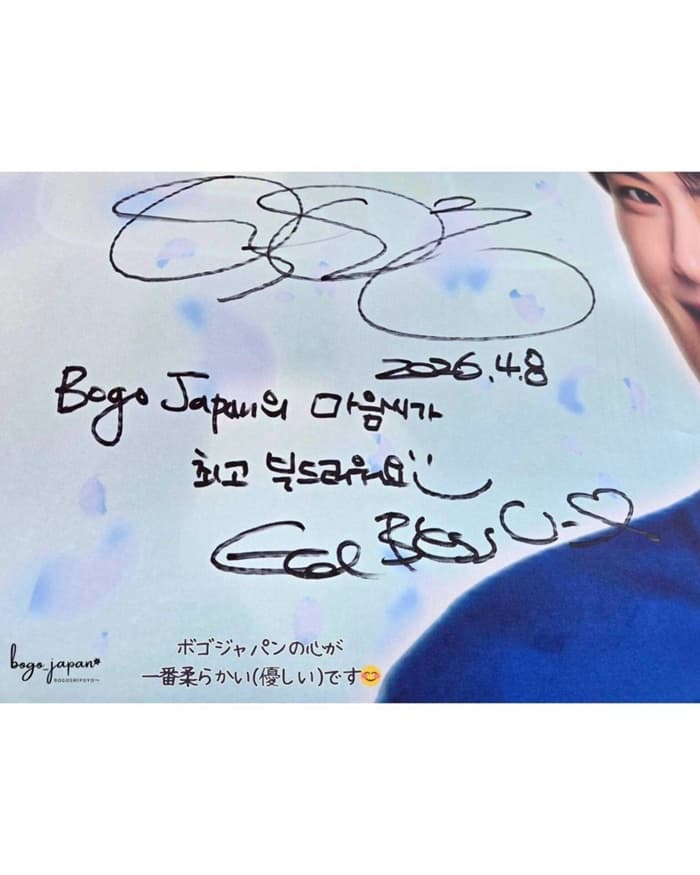 2026.4.8
Bogo Japan의 마음씨가
최고 부드러워요
God Bless U
bogo_japan*
BOGOSHIPOYO~
ボゴジャパンの心が
一番柔らかい(優しい)です😊